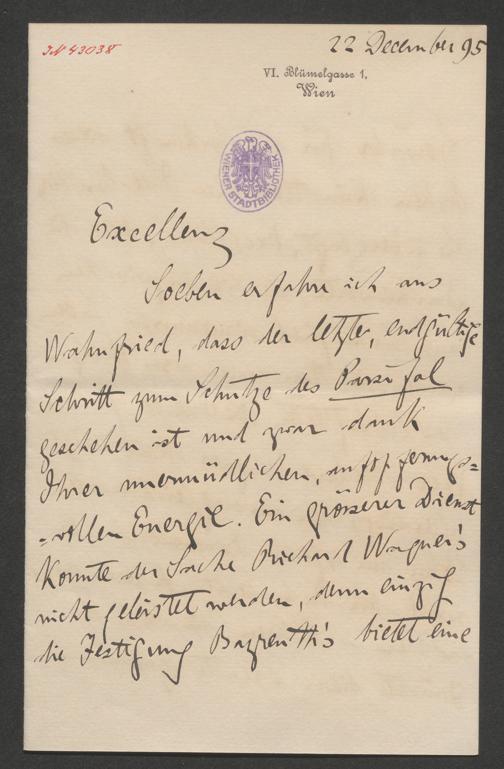 IN 43038
22 December 95
VI. Blümelgasse 1,
Wien
WIENER STADTBIBLIOTHEK
Excellenz
Soeben erfahre ich aus
Wahnfried, dass der letzte, endgültige
Schritt zum Schutze des Parsifal
geschehen ist und zwar dank
Ihrer unermüdlichen, aufopferungs=
=vollen Energie. Ein grösserer Dienst
konnte der Sache Richard Wagner's
nicht geleistet werden, denn einzig
die Festigung Bayreuth's bietet eine